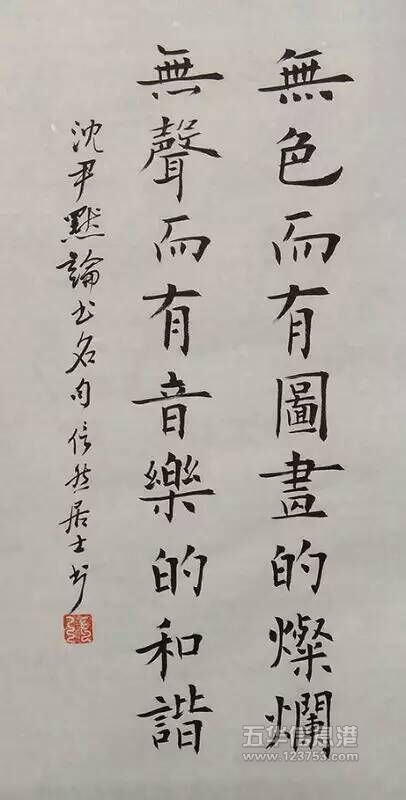 無色而有圖畫的燦爛
無聲而有音樂的和諧
沈尹默論书名句信然居士书
五华信息港
www.123753.com